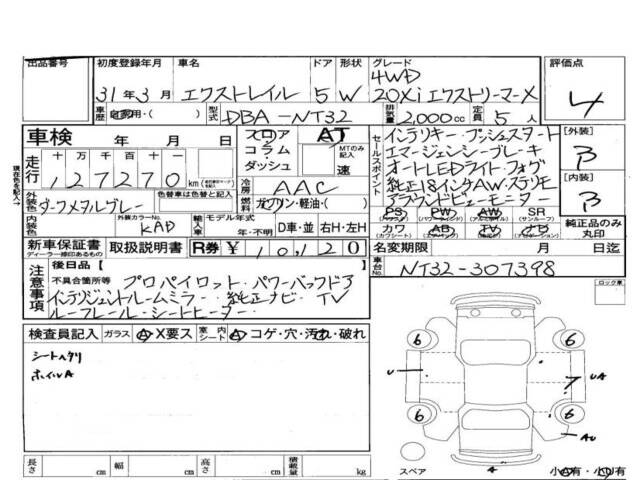 出品番号 初度登録年月 車名 ドア 形状 グレード 評価点
4WD
31年3月 エクストレイル 5 W 20Xi エクストリーマーX 4
車歴 自家用・( ) 型式 DBA-NT32 排気量 2,000cc 定員 5人
車検 年 月 日 フロア AT
コラム・ダッシュ MTのみ記入 速
セールスポイント インテリキー プッシュスタート
エマージェンシーブレーキ
オートLEDライト フォグ
純正18インチAW ステリモ
アラウンドビューモニター
[外装] B
[内装] B
走行 十 万 千 百 十 一
127270 km
現在色を記入
外装色 ダークメタルグレー 色替車は色替と記入
冷房 AAC
燃料 ガソリン・軽油・( )
PS PW AW SR
(パワステ) (パワーウィンド) (アルミホイル) (サンルーフ)
カワ AB TV ナビ
(カワシート) (エアバッグ)
純正品のみ丸印
内装色 外装カラーNo. KAD 輸入車 モデル年式 年・不明 D車・並 右H・左H
新車保証書 取扱説明書 R券 ¥ 10,120
ディーラー捺印あるもの
名変期限 月 日迄
車台No. NT32-307398
注意事項 後日品【 】
不具合箇所等 プロパイロット・パワーバックドア
インテリジェントルームミラー・純正ナビ・TV
ルーフレール・シートヒーター
ロック車
検査員記入 ガラス A X要ス 室内シート A コゲ・穴・汚れ・破れ
シートヘタリ
ホイルA
6 6
U 7 UA
6 6
AU
スペア A
長さ cm 幅 cm 高さ cm 積載量 kg